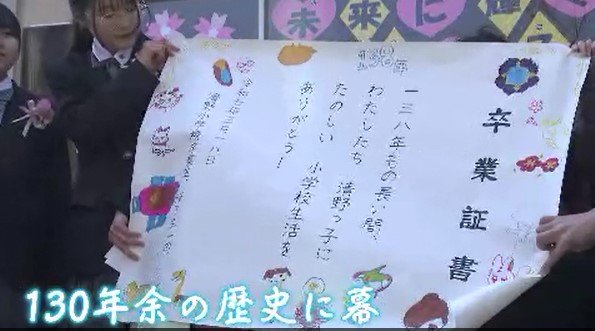 未来に
卒業証書
138年
一三八年もの長い間、
わたしたち 野っ子に
たのしい 小学校生活を
ありがとう!
年三月一八日
130年余の歴史に幕